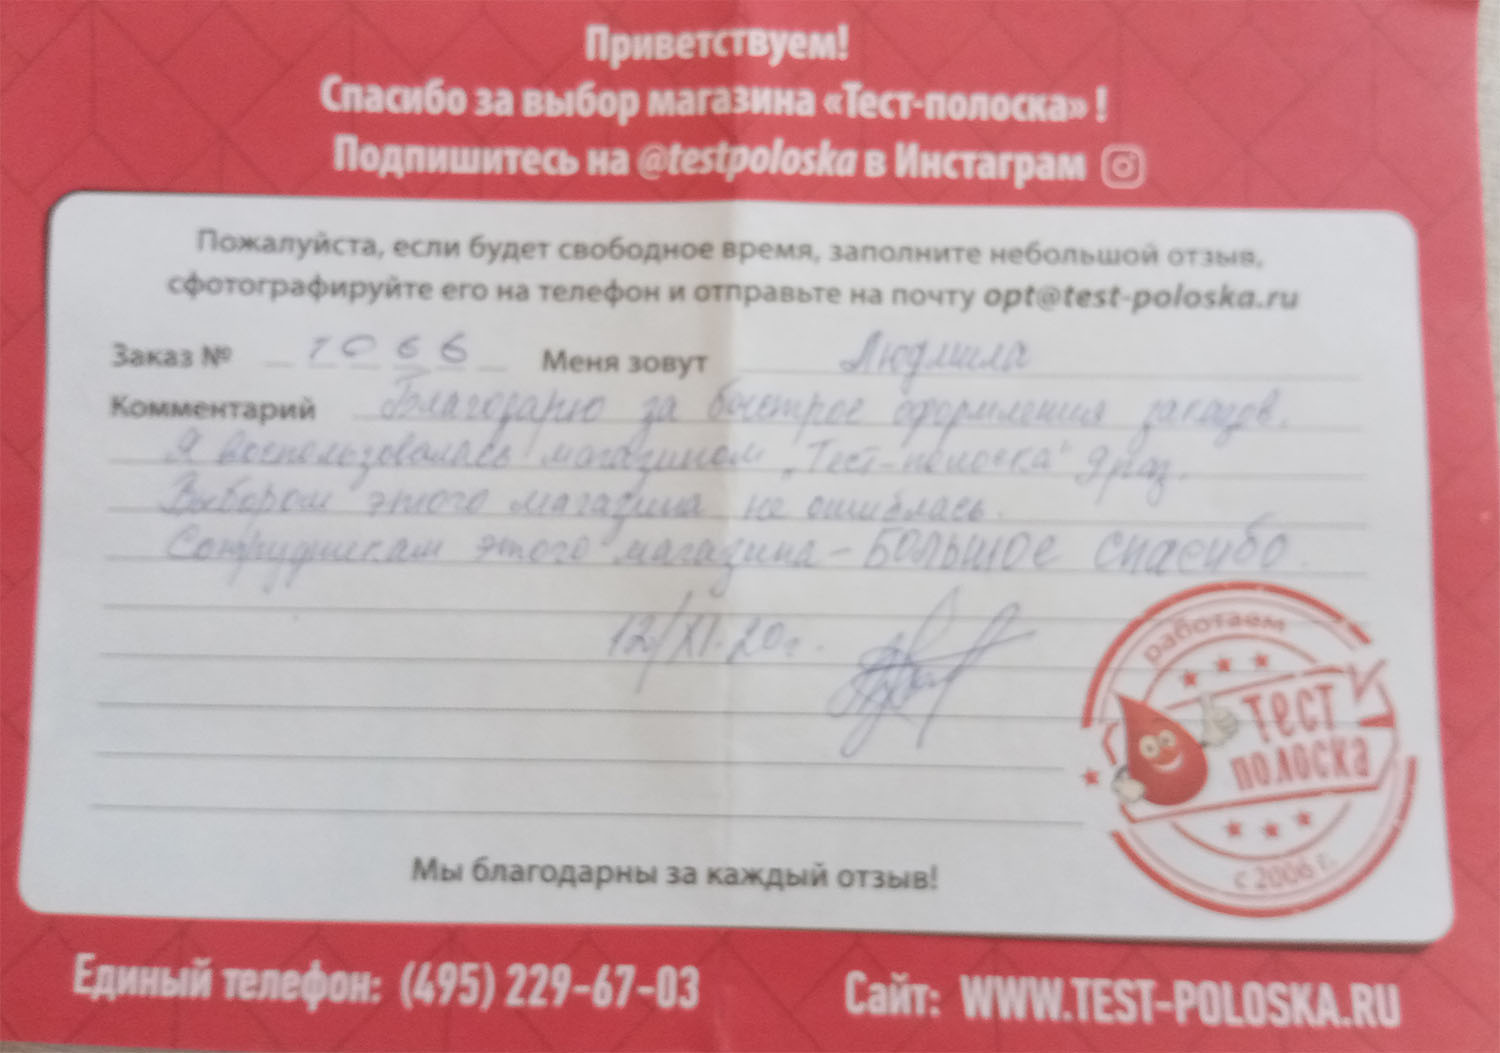 Приветствуем!
Спасибо за выбор магазина «Тест-полоска» !
Подпишитесь на @testpoloska в Инстаграм
Пожалуйста, если будет свободное время, заполните небольшой отзыв,
сфотографируйте его на телефон и отправьте на почту opt@test-poloska.ru
Заказ № 1066 Меня зовут Людмила
Комментарий Благодарю за быстрое оформления заказов.
Я воспользовалась магазином „Тест-полоска" 9 раз.
Выбором этого магазина не ошиблась.
Сотрудникам этого магазина – Большое спасибо.
12/XI.20г.
работаем
Тест
полоска
с 2006 г.
Мы благодарны за каждый отзыв!
Единый телефон: (495) 229-67-03 Сайт: WWW.TEST-POLOSKA.RU